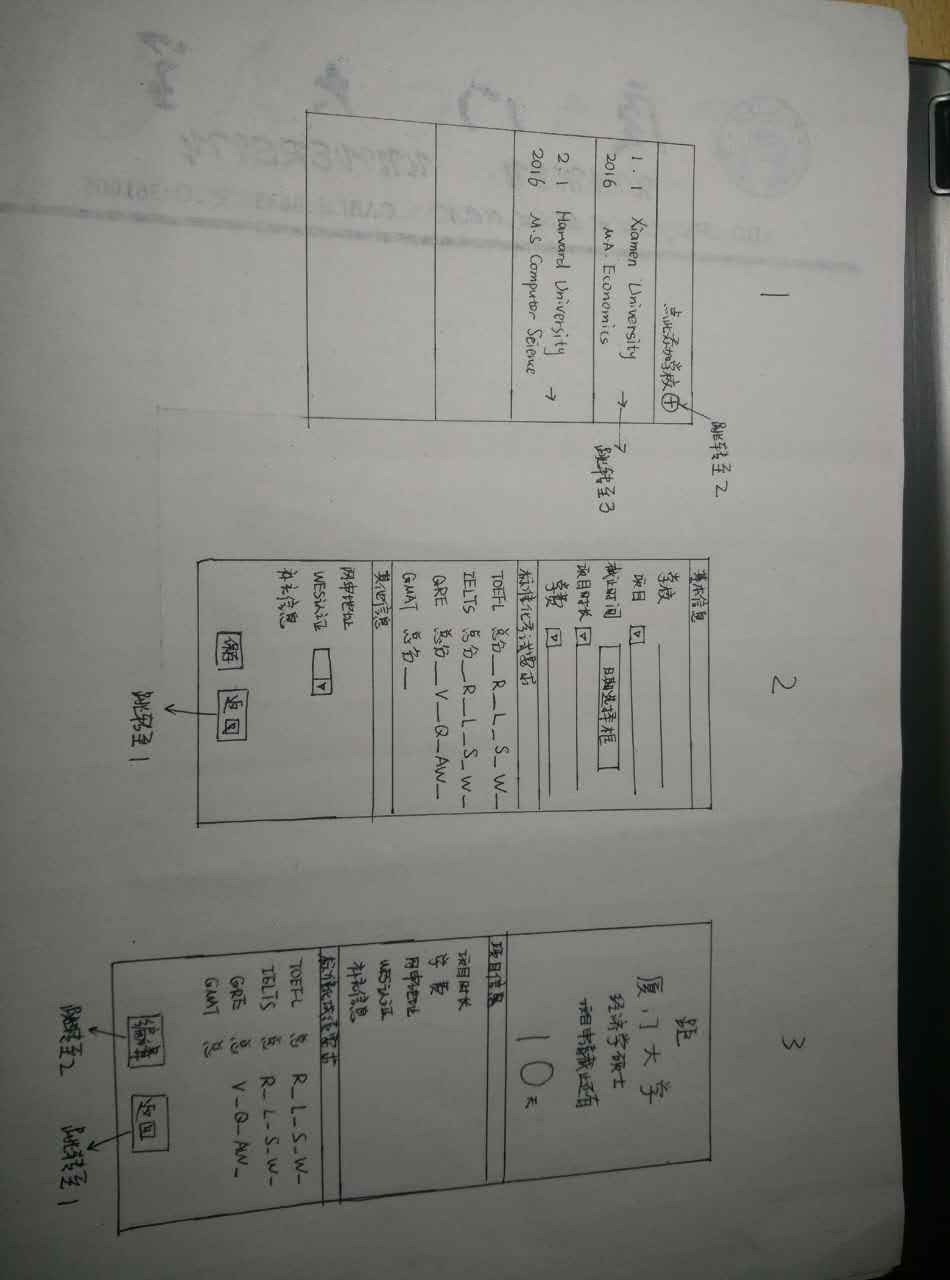 1
跳转至2
点此添加学校
1.1 Xiamen University
2016 M.A. Economics
跳转至3
2.1 Harvard University
2016 M.S Computer Seience
2
基本信息
学校
项目
截止时间 日期选择框
项目时长
学费
标准化考试要求
TOEFL 总分__R__L_S_W_
IELTS 总分__R_L_S_W_
GRE 总分__V_Q_AW_
GMAT 总分__
其他信息
网申地址
WES认证
补充信息
保存 返回
跳转至1
3
距
厦门大学
经济学硕士
项目申请截止还有
10天
项目信息
项目时长
学费
网申地址
WES认证
补充信息
标准化成绩要求
TOEFL 总 R_L_S_W_
IELTS 总 R_L_S_W_
GRE 总 V_Q_AW_
GMAT 总
编辑 返回
跳转至2 跳转至1